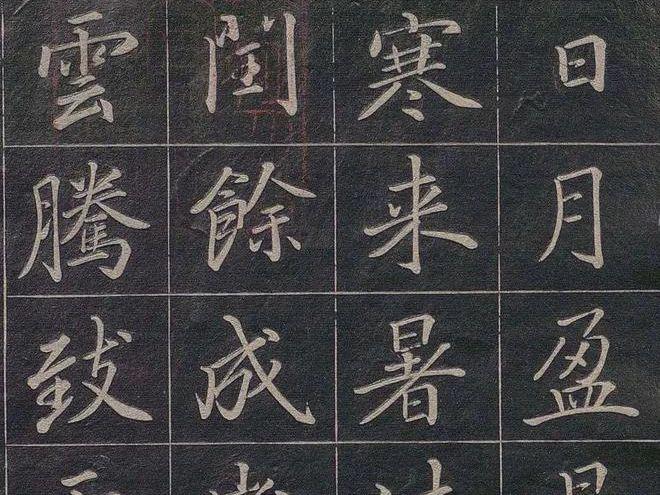 日月盈
寒来暑
閏餘成
雲騰致